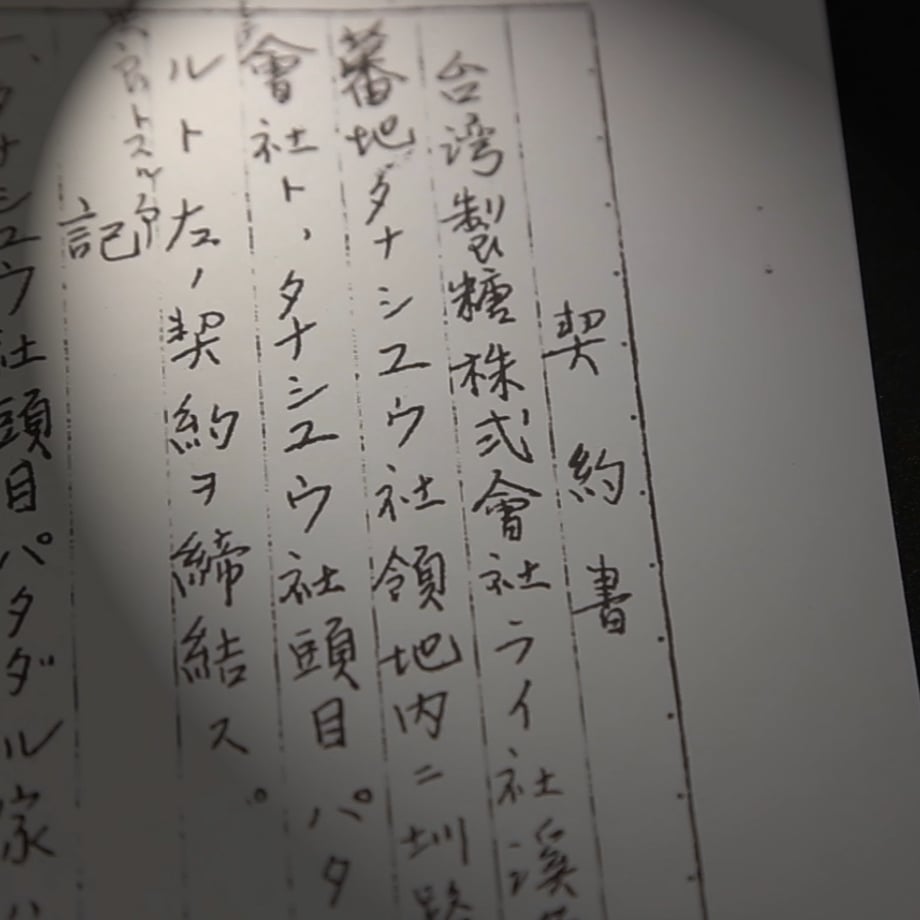 契約書
台湾製糖株式會社ライ社溪
蕃地タナシユウ社領地内ニ圳路
會社ト、タナシユウ社頭目パタ
ルト左ノ契約ヲ締結ス。
記
一、タナシユウ社頭目パタダル家ハ